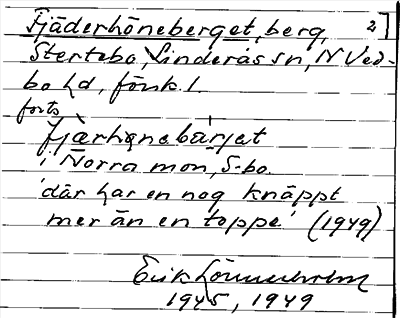 Fjäderhöneberget, berg, 2]
Stertebo, Linderås sn, N Ved-
bo hd, Jönk. l.
forts
fjærhönebärjet
i Norra mon, S-bo.
'där har en nog knäppt
mer än en toppe' (1949)
Erik Lönnerholm
1945, 1949